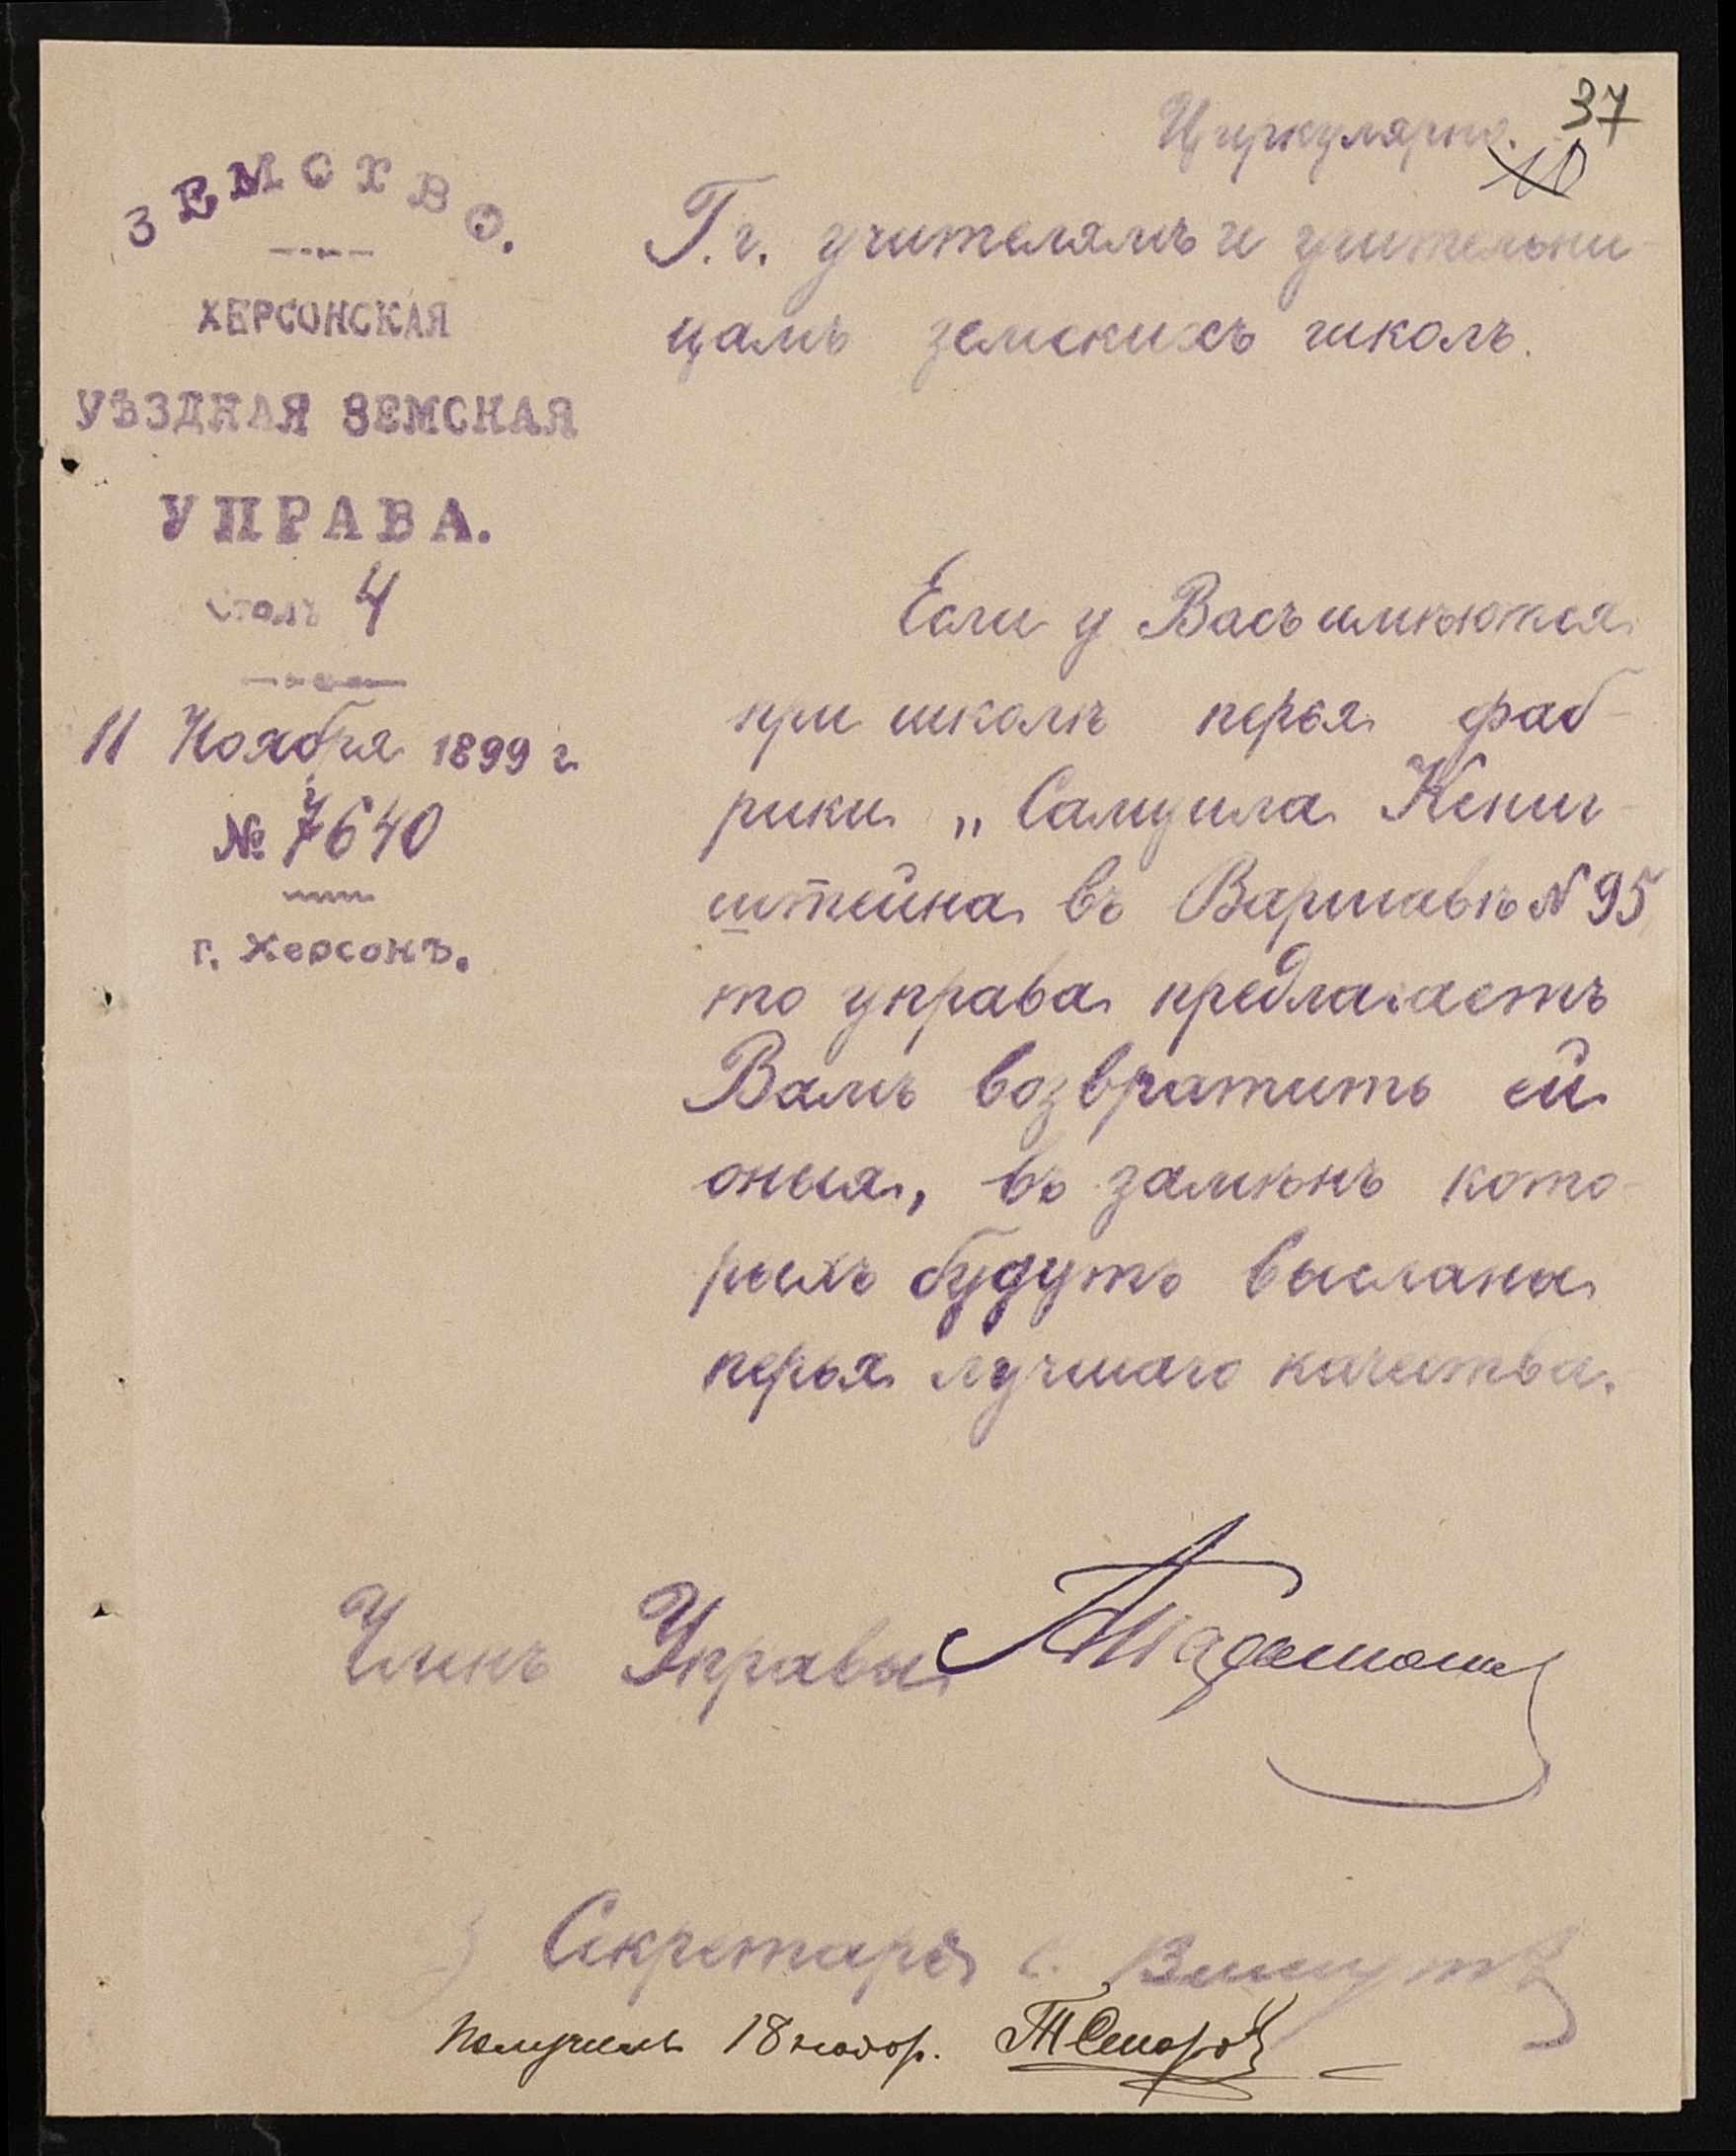 Циркулярно. 37
10
ЗЕМСТВО.
ХЕРСОНСКАЯ
УѢЗДНАЯ ЗЕМСКАЯ
УПРАВА.
Столъ 4
11 Ноября 1899 г.
№ 7640
г. Херсонъ.
Г.г. учителямъ и учительни-
цамъ земскихъ школъ.
Если у Васъ имѣются
при школѣ перья фаб-
рики „Самуила Кениг-
штейна въ Варшавѣ № 95
то управа предлагаетъ
Вамъ возвратить ей
оныя, въ замѣнъ кото-
рыхъ будутъ высланы
перья лучшаго качества.
Членъ Управы
Секретарь
Получилъ 18 ноябр.